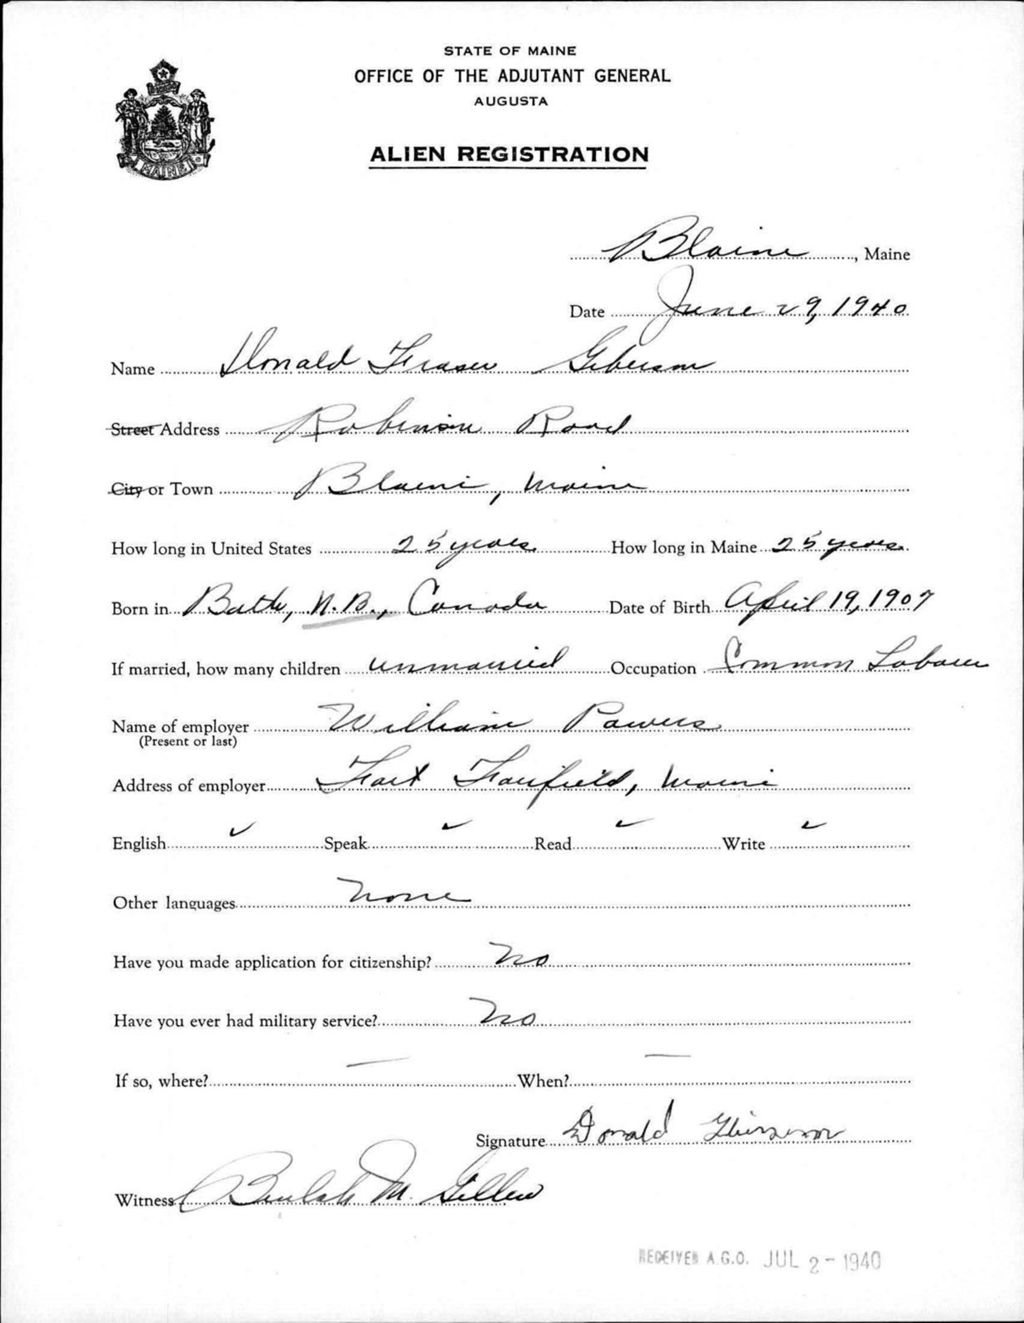 STATE OF MAINE
OFFICE OF THE ADJUTANT GENERAL
AUGUSTA
MAINE
ALIEN REGISTRATION
Blaine, Maine
Date June 29, 1940
Name Donald Fraser Giberson
Street Address Robinson Road
City or Town Blaine, Maine
How long in United States 25 years How long in Maine 25 years
Born in Bath, N.B., Canada Date of Birth April 19, 1907
If married, how many children unmarried Occupation Common Laborer
Name of employer William Powers
(Present or last)
Address of employer Fort Fairfield, Maine
English ✓ Speak ✓ Read ✓ Write ✓
Other languages None
Have you made application for citizenship? No
Have you ever had military service? No
If so, where? — When? —
Signature Donald Giberson
Witness Beulah M.
RECEIVED A.G.O. JUL 2 - 1940